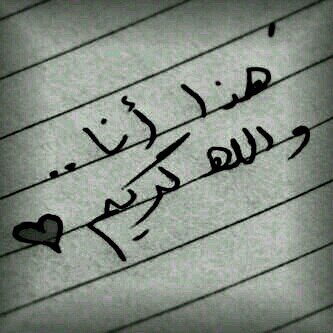 هذا أنا ..
والله كريم ♥